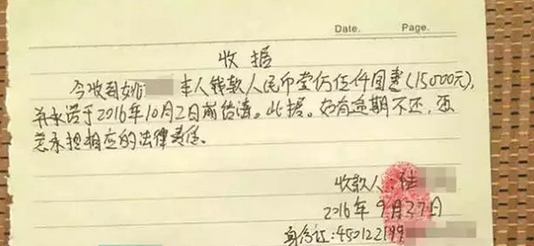 Date. Page.
收据
今收到姚 本人钱款人民币壹万伍仟圆整(15000元),
并承诺于2016年10月2日前结清。此据。如有逾期不还,愿
意承担相应的法律责任。
收款人: 陆
2016年9月27日
身份证:450122199